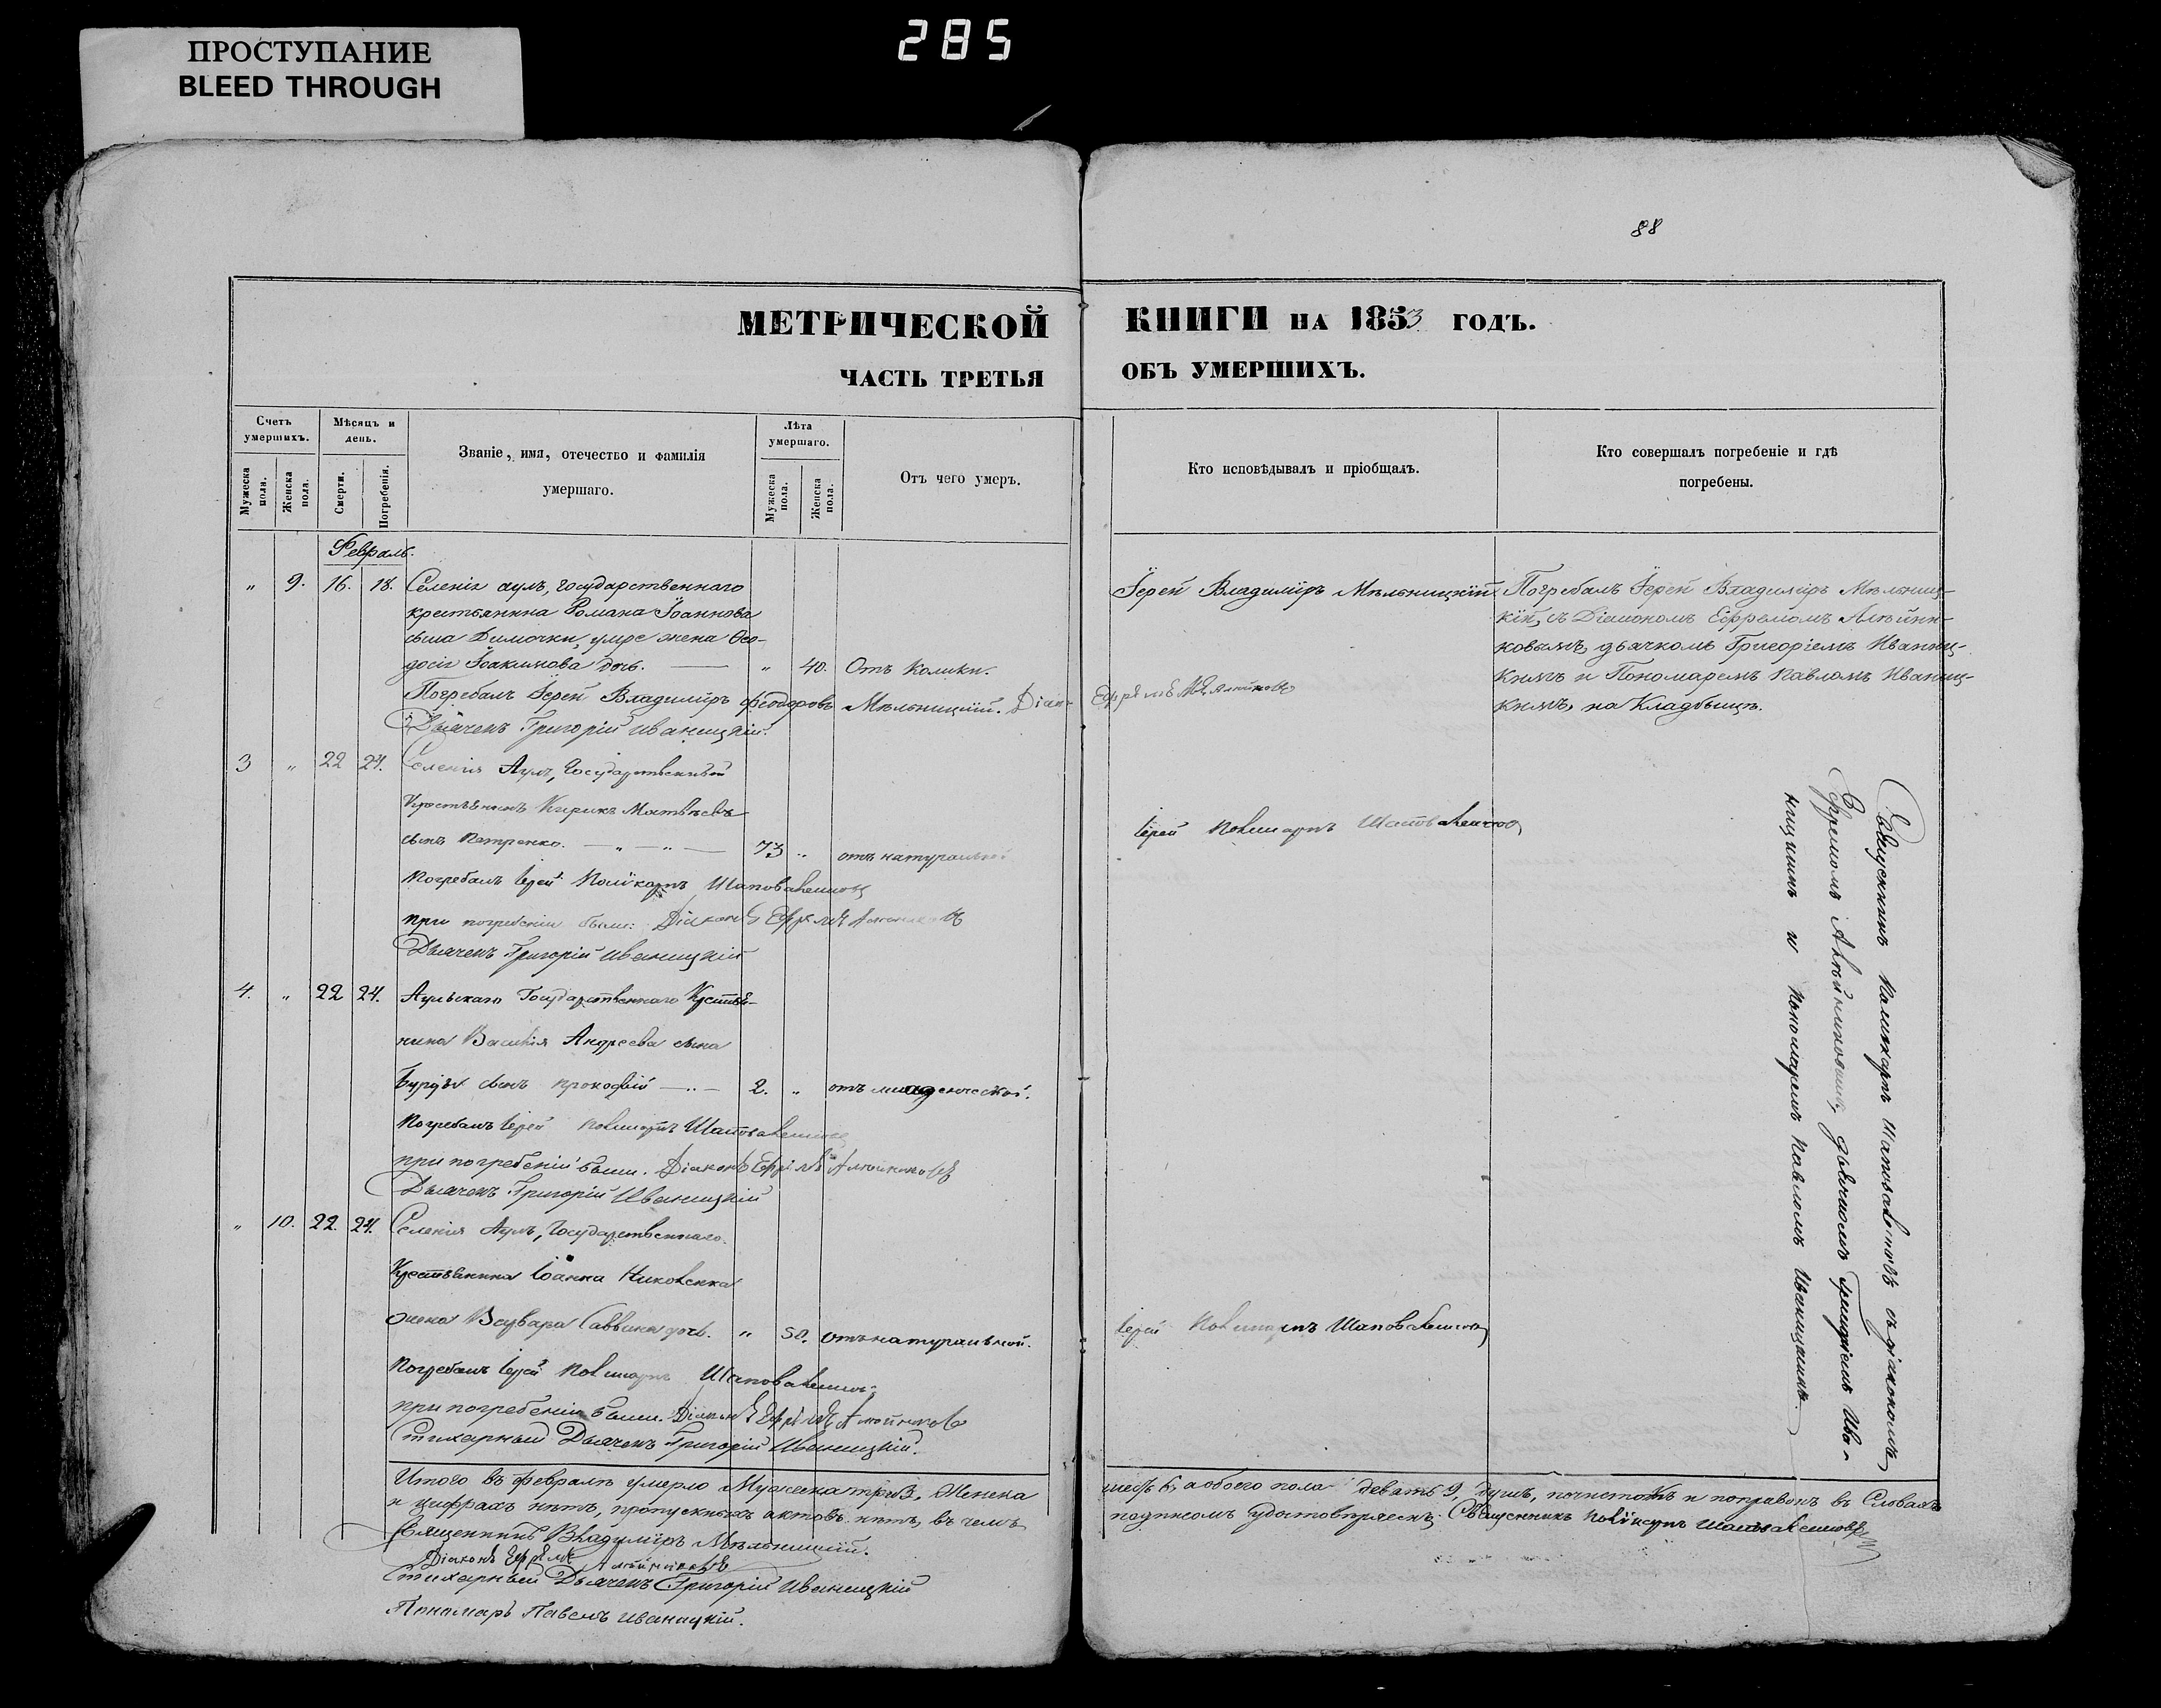 285
ПРОСТУПАНИЕ
BLEED THROUGH
88
МЕТРИЧЕСКОЙ КНИГИ НА 1853 ГОДЪ.
ЧАСТЬ ТРЕТЬЯ ОБЪ УМЕРШИХЪ.
Счетъ умершихъ.
Мужеска пола.
Женска пола.
Мѣсяцъ и день.
Смерти.
Погребенія.
Званіе, имя, отечество и фамилія
умершаго.
Лѣта умершаго.
Мужеска пола.
Женска пола.
Отъ чего умеръ.
Кто исповѣдывалъ и пріобщалъ.
Кто совершалъ погребеніе и гдѣ
погребены.
Февраль.
„ 9. 16. 18. Селенія аулъ, государственнаго
крестьянина Романа Іоаннова
сына Димочки, умре жена Ѳео-
досія Іоакимова дочь. — „ 40. Отъ колики.
Погребалъ Іерей Владиміръ Феодоровъ Мѣльницкій. Діак- Ефремъ Алѣйниковъ
Дьячекъ Григорій Иваницкій.
Іерей Владиміръ Мѣльницкій
Погребалъ Іерей Владиміръ Мѣльниц-
кій, съ Діакономъ Ефремомъ Алѣйни-
ковымъ, дьячкомъ Григоріемъ Иваниц-
кимъ и Пономаремъ Павломъ Иваниц-
кимъ, на Кладбищѣ.
3 „ 22 24. Селенія Аулъ, Государственный
Крестьянинъ Кирикъ Матвѣевъ
сынъ Петренко. — „ — „ — 73 „ отъ натуральной
Погребалъ Іерей Поликарпъ Шаповаленковъ
при погребеніи были: Діаконъ Ефремъ Алейниковъ
Дьячекъ Григорій Иваницкій
Іерей Поликарпъ Шаповаленковъ
4. „ 22 24. Аульскаго Государственнаго Крестья-
нина Василія Андреева сына
сынъ Прокофій — „ — 2. „ отъ младенческой.
Погребалъ Іерей Поликарпъ Шаповаленковъ
при погребеніи были. Діаконъ Ефремъ Алейниковъ
Дьячекъ Григорій Иваницкій
„ 10. 22. 24. Селенія Аулъ, Государственнаго
Крестьянина Іоанна
жена Варвара Саввина дочь. „ 50. отъ натуральной.
Погребалъ Іерей Поликарпъ Шаповаленковъ
при погребеніи были. Діаконъ Ефремъ Алейниковъ
Стихарный Дьячекъ Григорій Иваницкій.
Іерей Поликарпъ Шаповаленковъ
Священникъ Поликарпъ Шаповаленковъ съ діакономъ
Ефремомъ Алѣйниковымъ, дьячкомъ Григоріемъ Ива-
ницкимъ и Пономаремъ Павломъ Иваницкимъ.
Итого въ февралѣ умерло Мужеска три 3, Женска шесть 6, а обоего пола девять 9, душъ, почистокъ и поправокъ въ Словахъ
и цифрахъ нѣтъ, пропускныхъ актовъ нѣтъ, въ чемъ подписомъ удостовѣряемъ: Священникъ Поликарпъ Шаповаленковъ
Священникъ Владиміръ Мѣльницкій.
Діаконъ Ефремъ Алейниковъ
Стихарный Дьячекъ Григорій Иваницкій
Пономарь Павелъ Иваницкій.